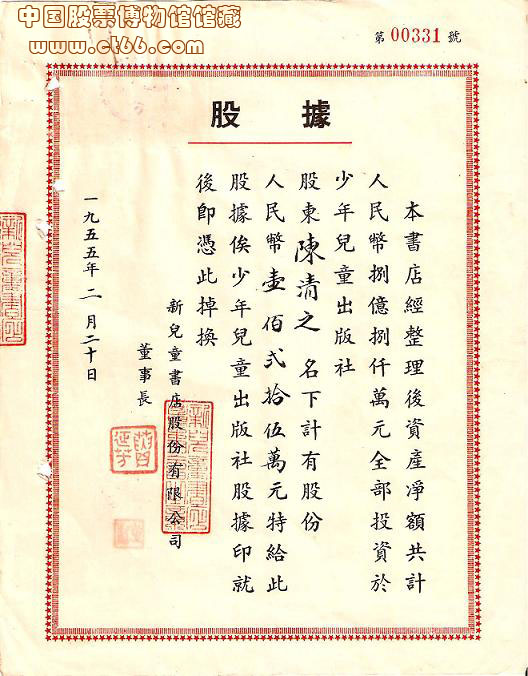 中国股票博物馆馆藏
www.ct66.com
第 00331 號
股據
本書店經整理後資產淨額共計
人民幣捌億捌仟萬元全部投資於
少年兒童出版社
股東陳清之名下計有股份
人民幣壹佰弍拾伍萬元特給此
股據俟少年兒童出版社股據印就
後即憑此掉換
新兒童書店股份有限公司
董事長
一九五五年二月二十日